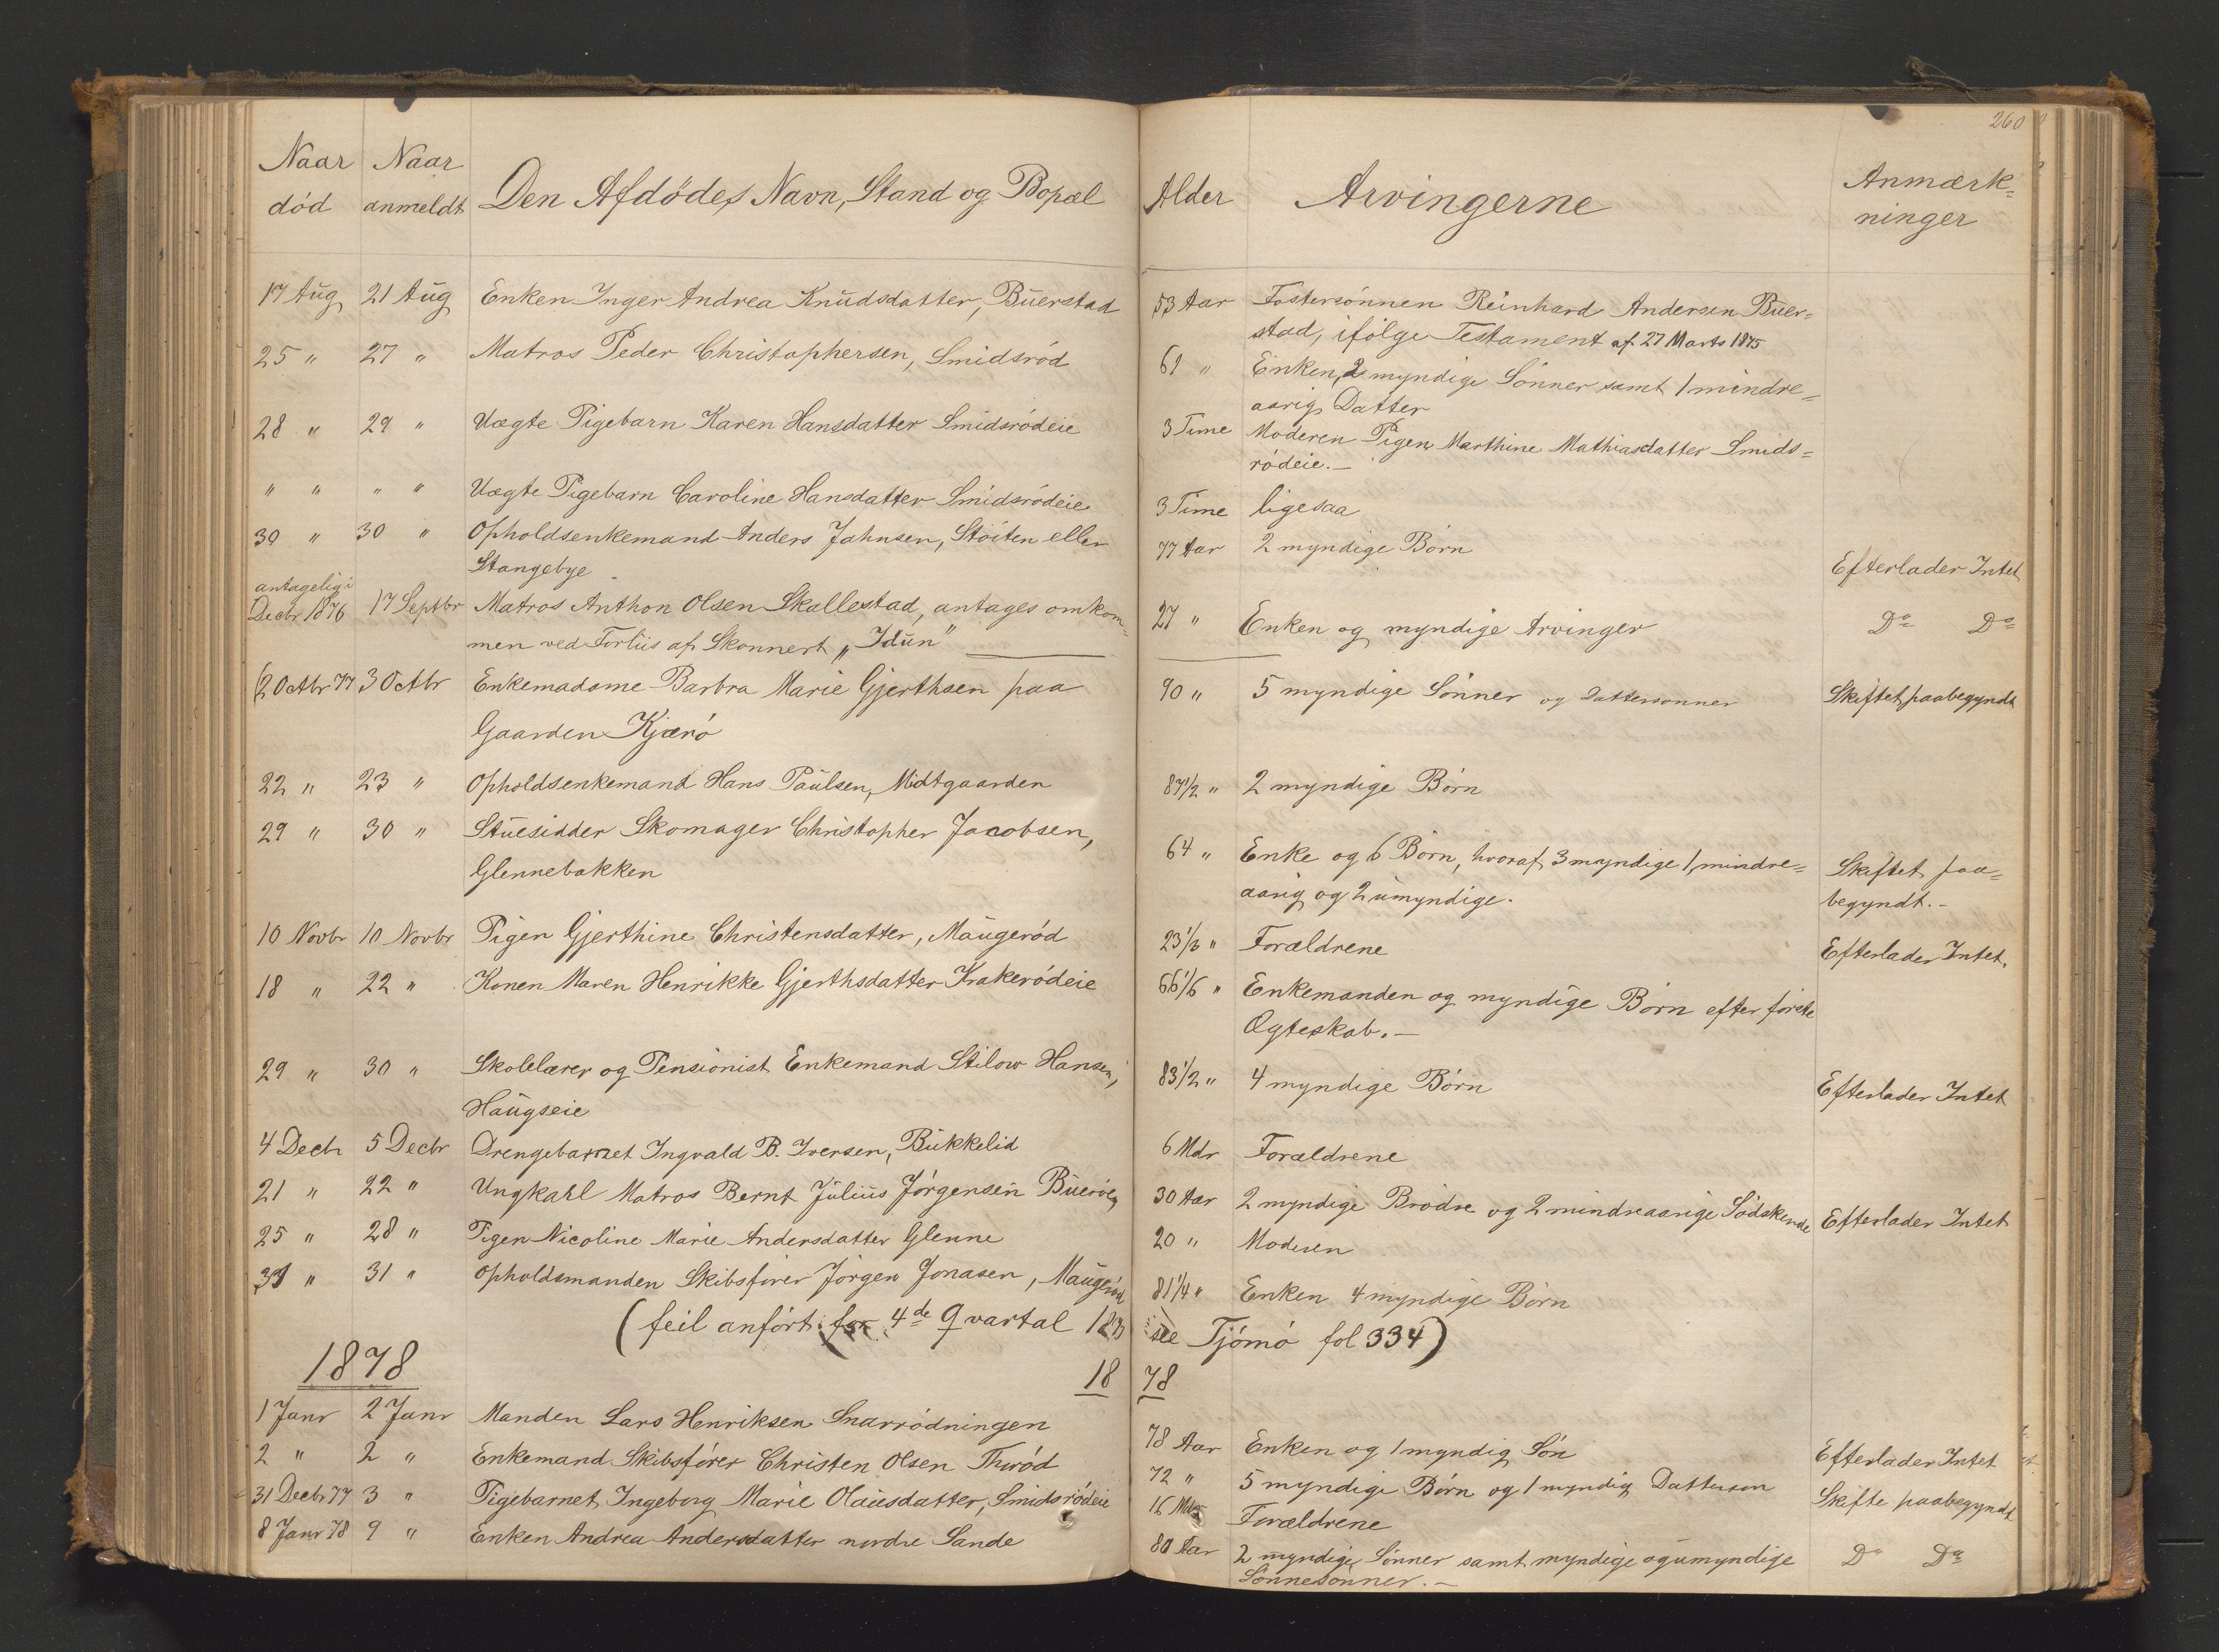 260
Naar død | Naar anmeldt | Den Afdødes Navn, Stand og Bopæl | Alder | Arvingerne | Anmærk=
ninger
17 Aug | 21 Aug | Enken Inger Andrea Knudsdatter, Buerstad | 53 Aar | Fostersønnen Reinhard Andersen Buer=
stad, ifølge Testament af 27 Marts 1875
25 " | 27 " | Matros Peder Christophersen, Smidsrød | 69 " | Enken, 2 myndige Sønner samt 1 mindre=
aarig Datter
28 " | 29 " | Uægte Pigebarn Karen Hansdatter Smidsrødeie | 3 Time | Moderen Pigen Marthine Mathiasdatter Smids=
rødeie.—
" " | " " | Uægte Pigebarn Caroline Hansdatter Smidsrødeie | 3 Time | ligesaa
30 " | 30 " | Opholdsenkemand Anders Jahnsen, Støiten eller | 77 Aar | 2 myndige Børn | Efterlader Intet
Stangebye
antagelig i
Decbr 1876 | 17 Septbr | Matros Anthon Olsen Skallestad, antages omkom= | 27 " | Enken og myndige Arvinger | Do Do
men ved Forliis af Skonnert „Idun"
2 Octbr 77 | 3 Octbr | Enkemadame Barbra Marie Gjerthsen paa | 90 " | 5 myndige Sønner og Dattersønner | Skiftet paabegyndt
Gaarden Kjærø
22 " | 23 " | Opholdsenkemand Hans Paulsen, Midtgaarden | 87 1/2 " | 2 myndige Børn
29 " | 30 " | Stuesidder Skomager Christopher Jacobsen, | 64 " | Enke og 6 Børn, hvoraf 3 myndige 1 mindre= | Skiftet paa=
Glennebakken | aarig og 2 umyndige. | begyndt.—
10 Novbr | 10 Novbr | Pigen Gjerthine Christensdatter, Maugerød | 23 1/3 " | Forældrene | Efterlader Intet.
18 " | 22 " | Konen Maren Henrikke Gjerthsdatter Krakerødeie | 66 1/6 " | Enkemanden og myndige Børn efter første
Ægteskab.—
29 " | 30 " | Skolelærer og Pensionist Enkemand Stilow Hansen, | 83 1/2 " | 4 myndige Børn | Efterlader Intet
Haugseie
4 Decbr | 5 Decbr | Drengebarnet Ingvald B. Iversen, Bukkelid | 6 Mdr | Forældrene
21 " | 22 " | Ungkarl Matros Bernt Julius Jørgensen Buerøen | 30 Aar | 2 myndige Brødre og 2 mindreaarige Sødskende | Efterlader Intet
25 " | 28 " | Pigen Nicoline Marie Andersdatter Glenne | 20 " | Moderen
31 " | 31 " | Opholdsmanden Skibsfører Jørgen Jonasen, Maugerød | 81 1/4 " | Enken 4 myndige Børn
(feil anført: for 4de Qvartal | see Tjømø fol 334)
1878 | 18 78
1 Janr | 2 Janr | Manden Lars Henriksen Snarrødningen | 78 Aar | Enken og 1 myndig Søn | Efterlader Intet
2 " | 2 " | Enkemand Skibsfører Christen Olsen Thorød | 72 " | 5 myndige Børn og 1 myndig Dattersøn | Skifte paabegyndt
31 Decbr 77 | 3 " | Pigebarnet Ingeborg Marie Olausdatter, Smidsrødeie | 16 Mdr | Forældrene
8 Janr 78 | 9 " | Enken Andrea Andersdatter nordre Sande | 80 Aar | 2 myndige Sønner samt myndige og umyndige | Do Do
Sønnesønner.—